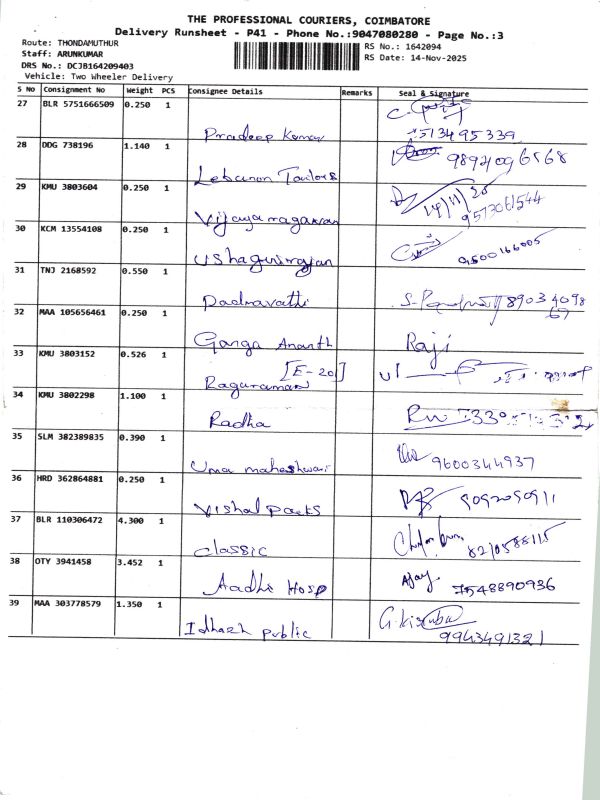 THE PROFESSIONAL COURIERS, COIMBATORE
Delivery Runsheet - P41 - Phone No.:9047080280 - Page No.:3
Route: THONDAMUTHUR
Staff: ARUNKUMAR
DRS No.: DCJB164209403
Vehicle: Two Wheeler Delivery
RS No.: 1642094
RS Date: 14-Nov-2025
S No Consignment No Weight PCS Consignee Details Remarks Seal & Signature
27 BLR 5751666509 0.250 1
Pradeep Kumar 9513495339
28 DDG 738196 1.140 1
Lebanon Tailors
29 KMU 3803604 0.250 1
Vijayaragavan 14/11/25 9573061544
30 KCM 13554108 0.250 1
Ushagirirajan 9500166005
31 TNJ 2168592 0.550 1
Padmavathi 89034098
32 MAA 105656461 0.250 1
Ganga Ananth Raji
33 KMU 3803152 0.526 1
[E-20]
Raguraman
34 KMU 3802298 1.100 1
Radha
35 SLM 382389835 0.390 1
Uma maheshwari 9600344937
36 HRD 362864881 0.250 1
Vishal Parts 9092090911
37 BLR 110306472 4.300 1
classic 8210588115
38 OTY 3941458 3.452 1
Aadhi Hosp Ajay 7548890936
39 MAA 303778579 1.350 1
Idhazh public G.Kiruba
9943491321